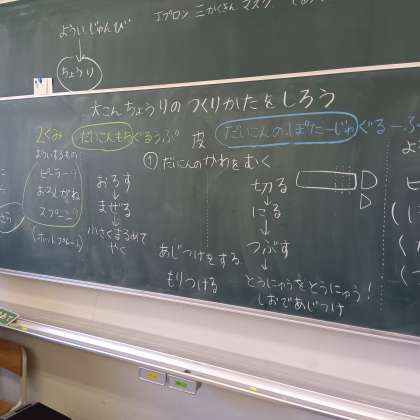 よういじゅんび
エプロン 三かくきん マスク
ちょうり
大こんちょうりのつくりかたをしろう
2くみ だいこんもちぐるうぷ
皮
だいこんのぽたーじゅぐるーぷ
① だいこんのかわをむく
よういするもの
ピーラー
おろしがね
スプーン
(ホットプレート)
おろす
↓
まぜる
↓
小さくまるめて
やく
あじつけをする
もりつける
切る
↓
にる
↓
つぶす
↓
とうにゅうをとうにゅう!
しおであじつけ